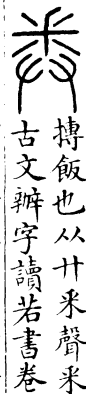 𢍏
摶飯也从廾釆聲釆
古文辦字讀若書卷